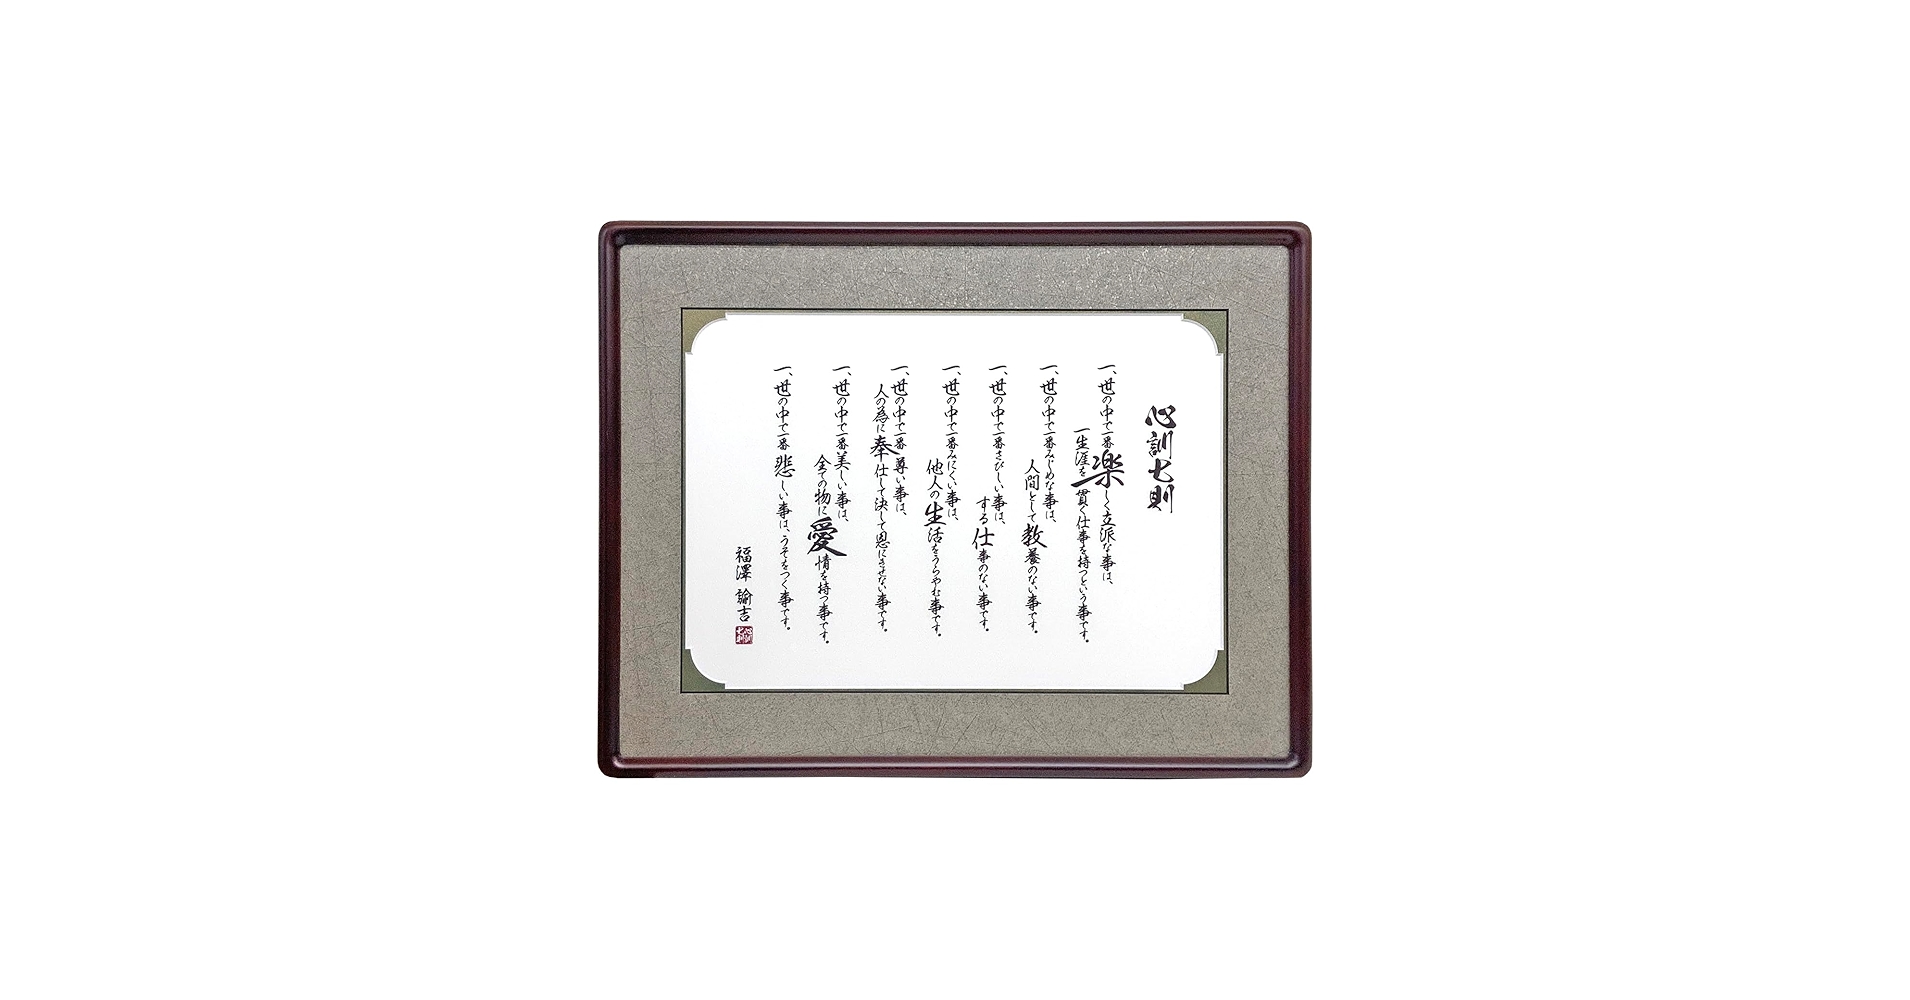 心訓七則
一、世の中で一番楽しく立派な事は、
一生涯を貫く仕事を持つという事です。
一、世の中で一番みじめな事は、
人間として教養のない事です。
一、世の中で一番さびしい事は、
する仕事のない事です。
一、世の中で一番みにくい事は、
他人の生活をうらやむ事です。
一、世の中で一番尊い事は、
人の為に奉仕して決して恩にきせない事です。
一、世の中で一番美しい事は、
全ての物に愛情を持つ事です。
一、世の中で一番悲しい事は、うそをつく事です。
福澤諭吉